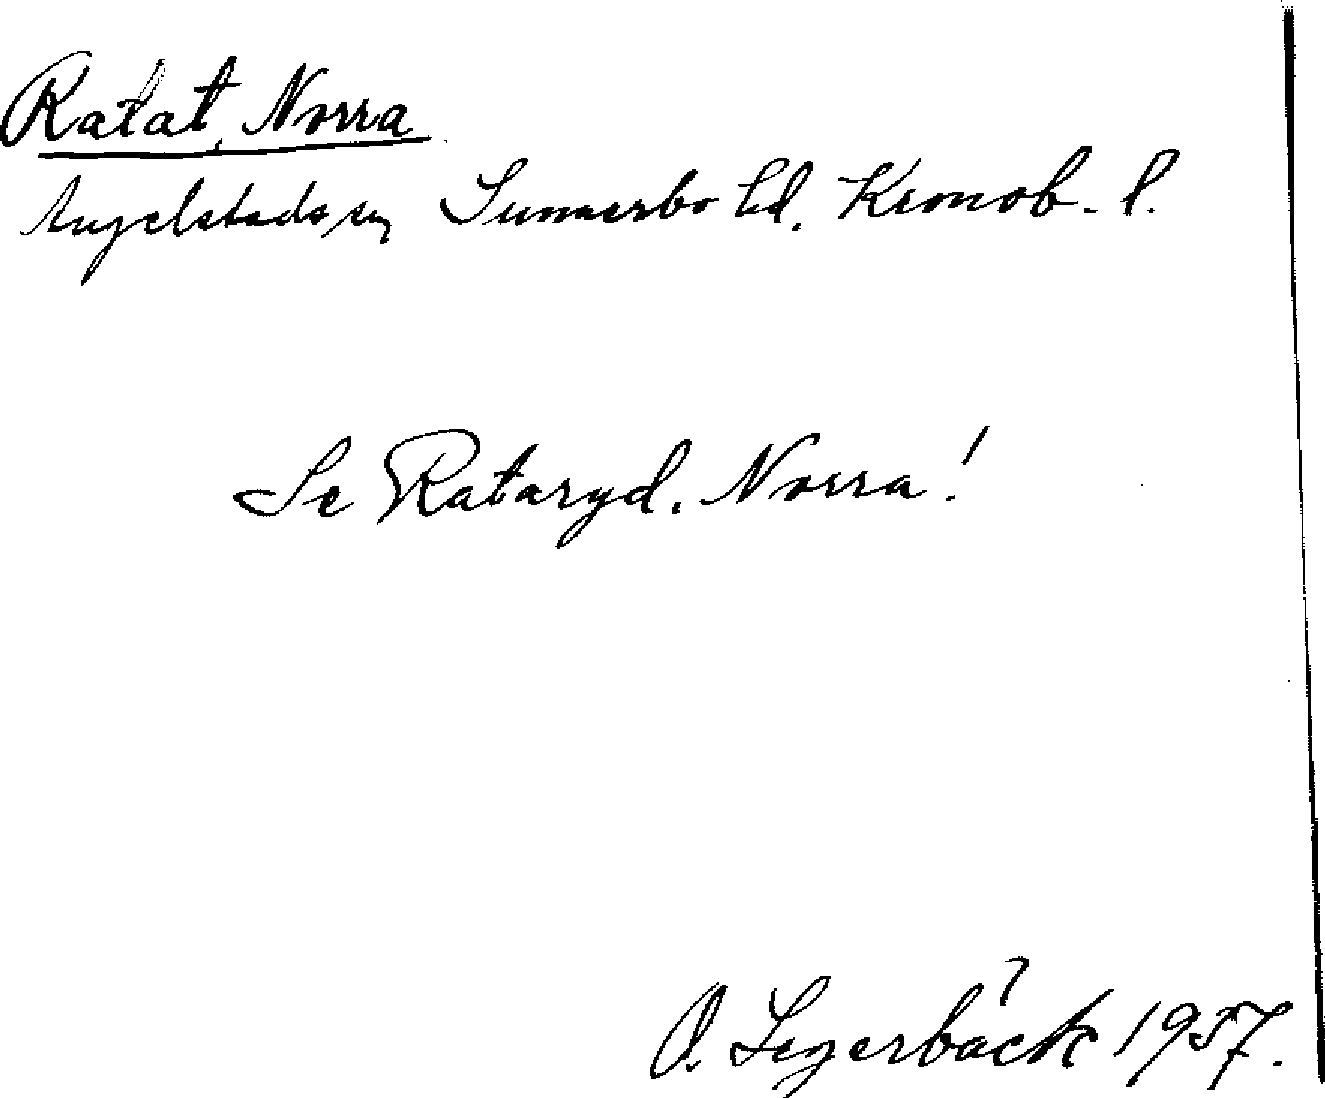 Ratat, Norra
Angelstads sn, Sunnerbo hd. Kronob. l.
Se Rataryd, Norra!
O. Segerbäck 1957.